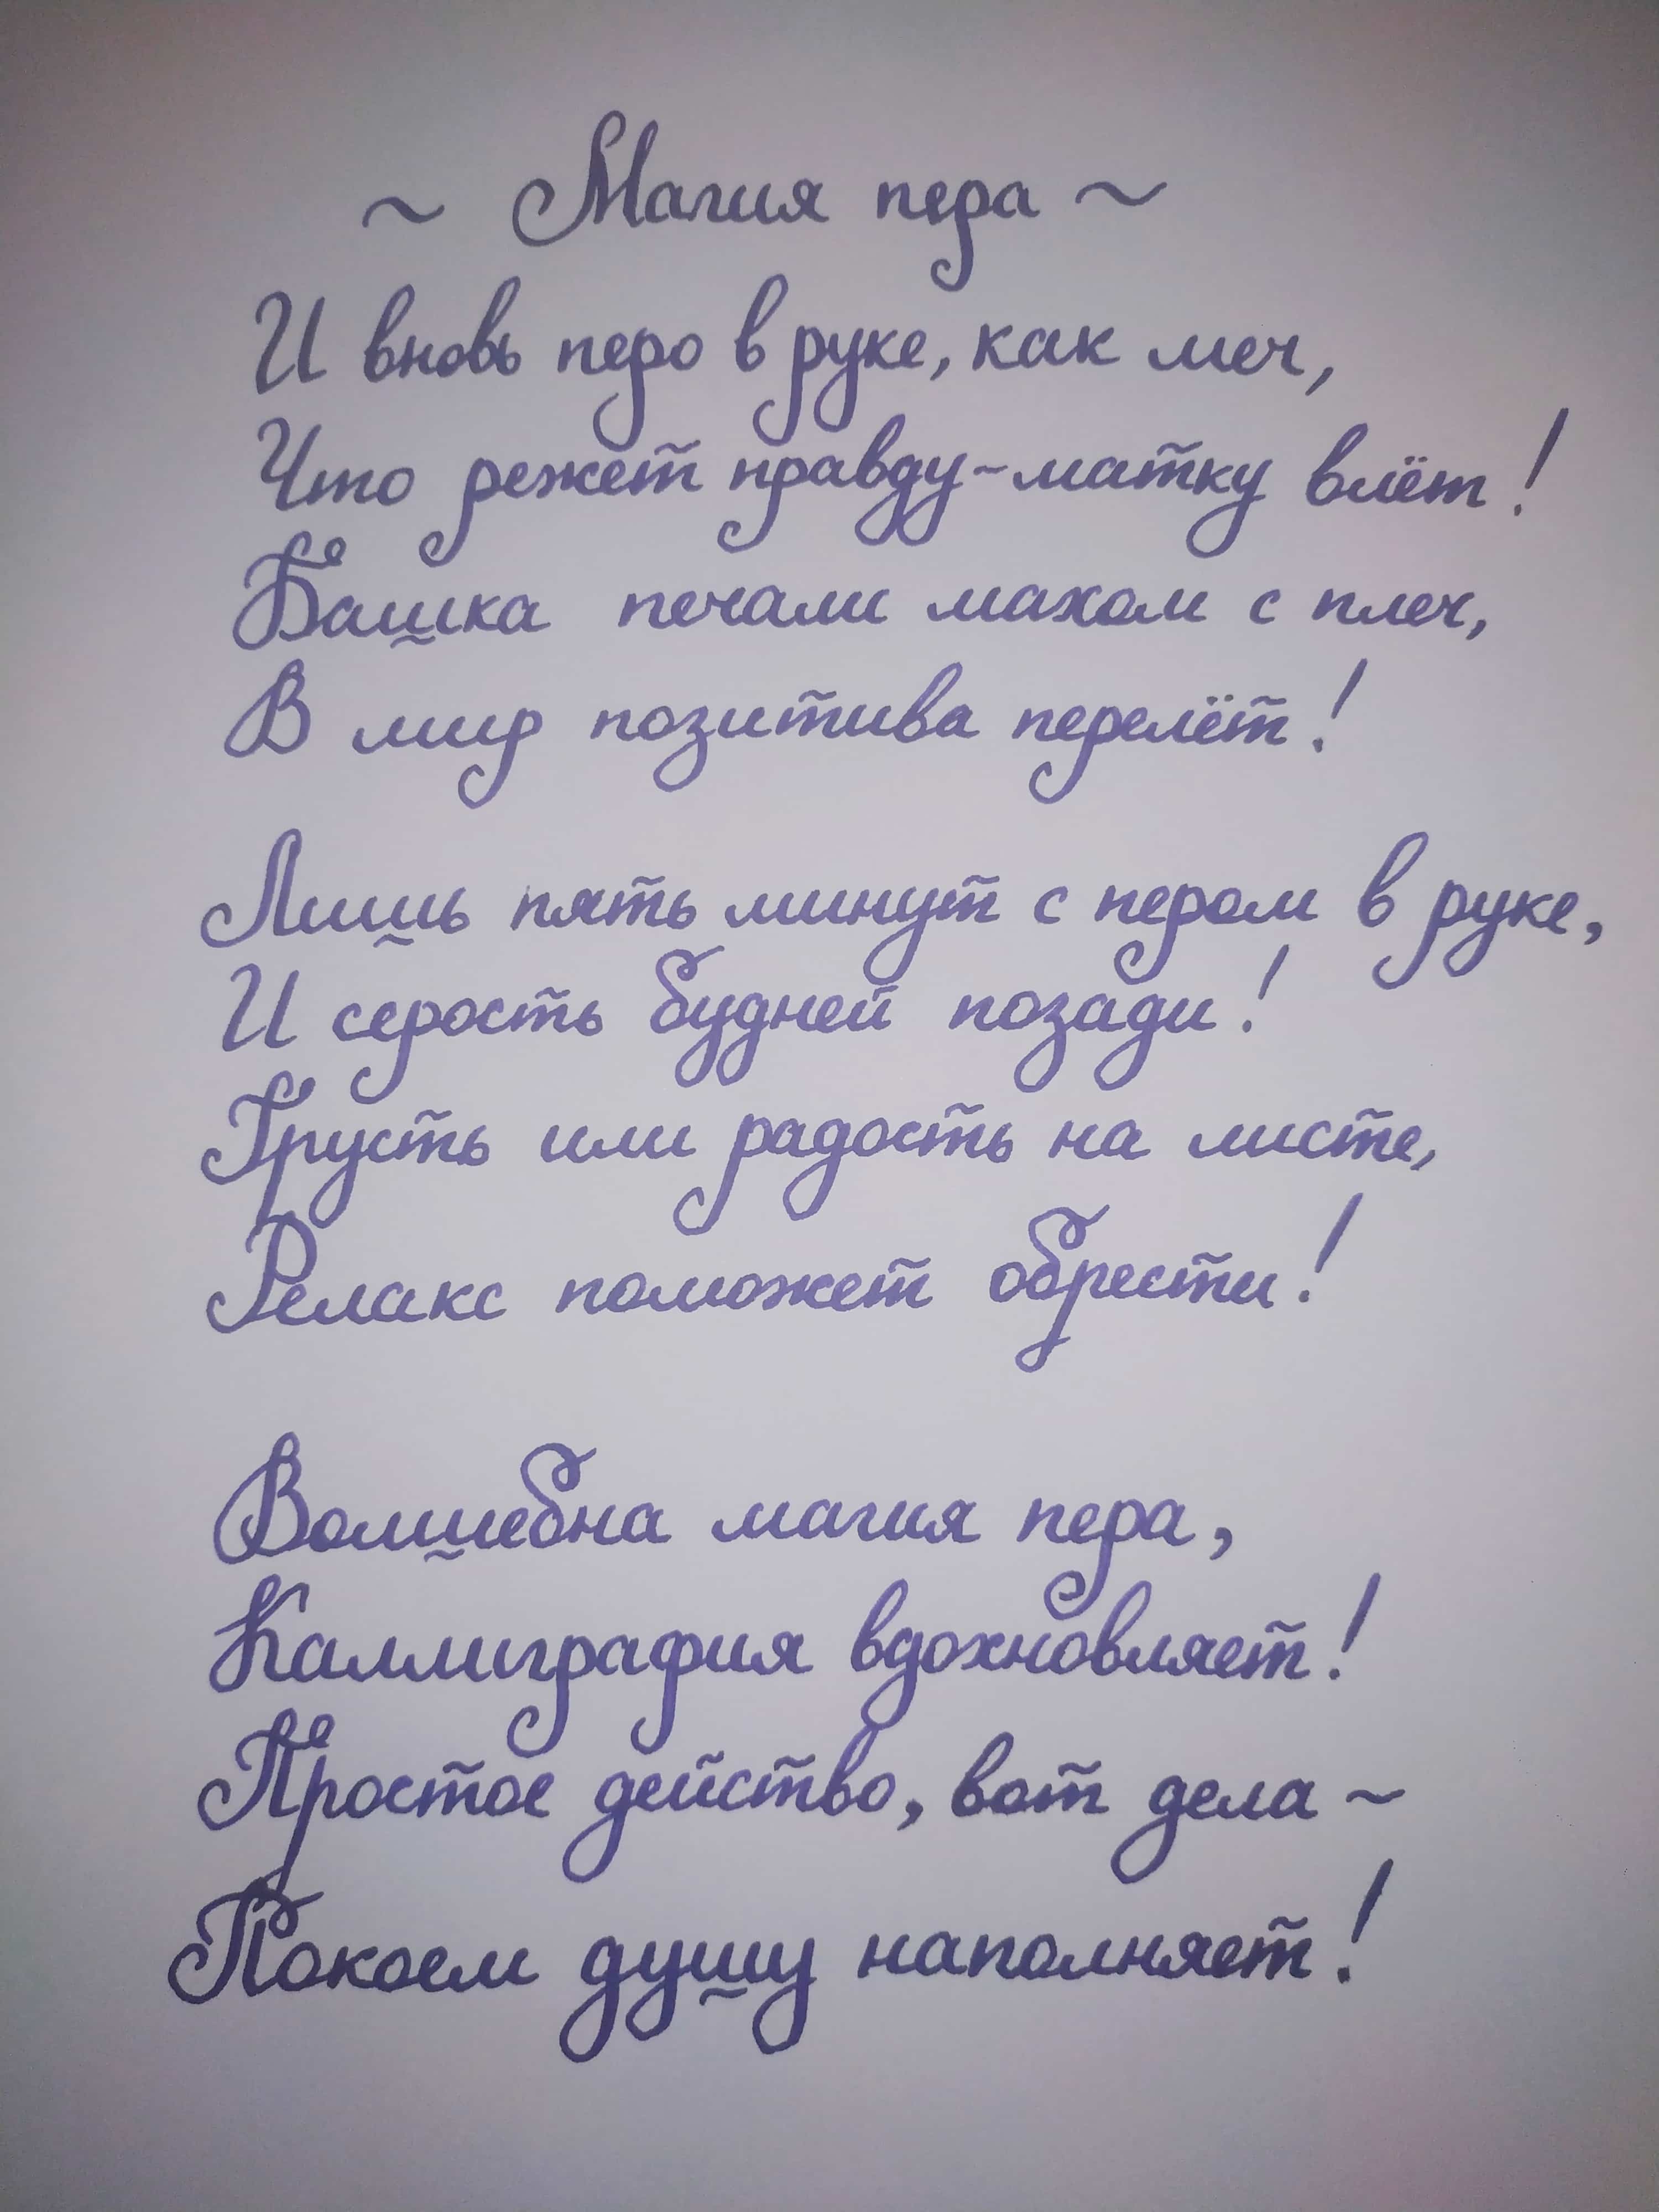 ~ Магия пера ~
И вновь перо в руке, как меч,
Что режет правду-матку влёт!
Башка печали махом с плеч,
В мир позитива перелёт!
Лишь пять минут с пером в руке,
И серость будней позади!
Грусть или радость на листе,
Релакс поможет обрести!
Волшебна магия пера,
Каллиграфия вдохновляет!
Простое действо, вот дела ~
Покоем душу наполняет!